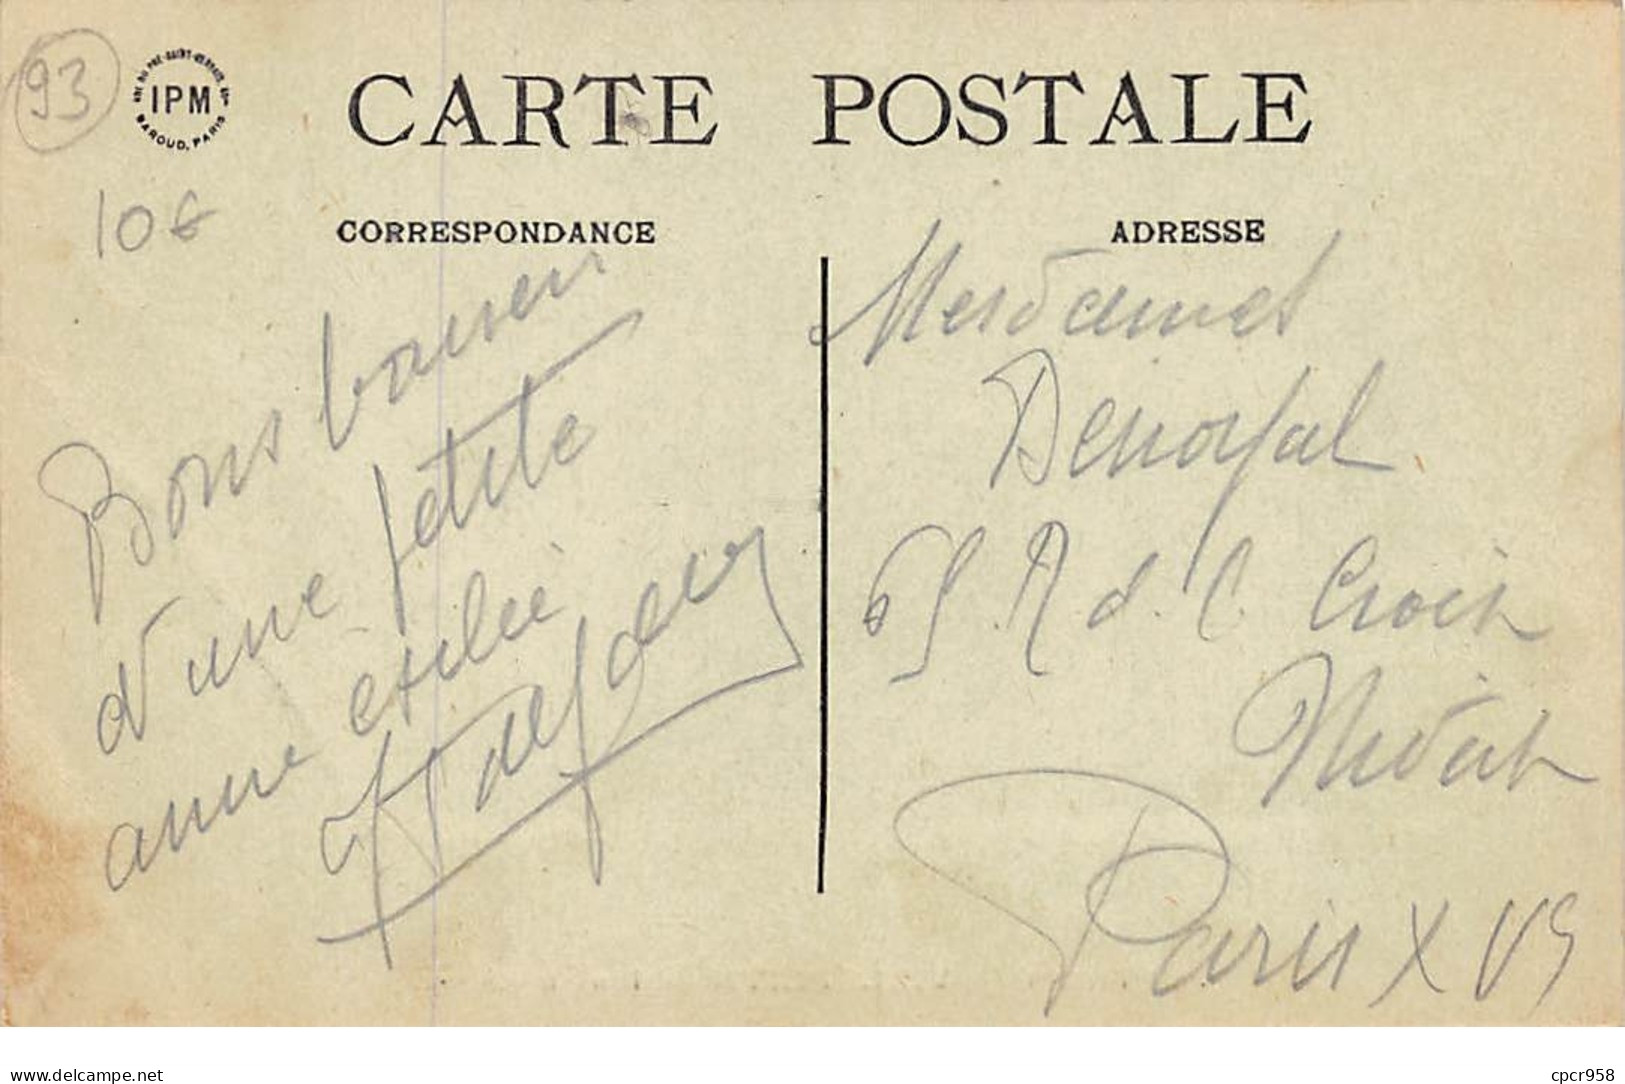 93
IPM
BAROUD, PARIS
CARTE POSTALE
10€
CORRESPONDANCE
ADRESSE
Bons baisers
d'une petite
amie exilée
Mesdames
65 R d. C. Croix
Nivert
Paris X V
delcampe.net
cpcr958